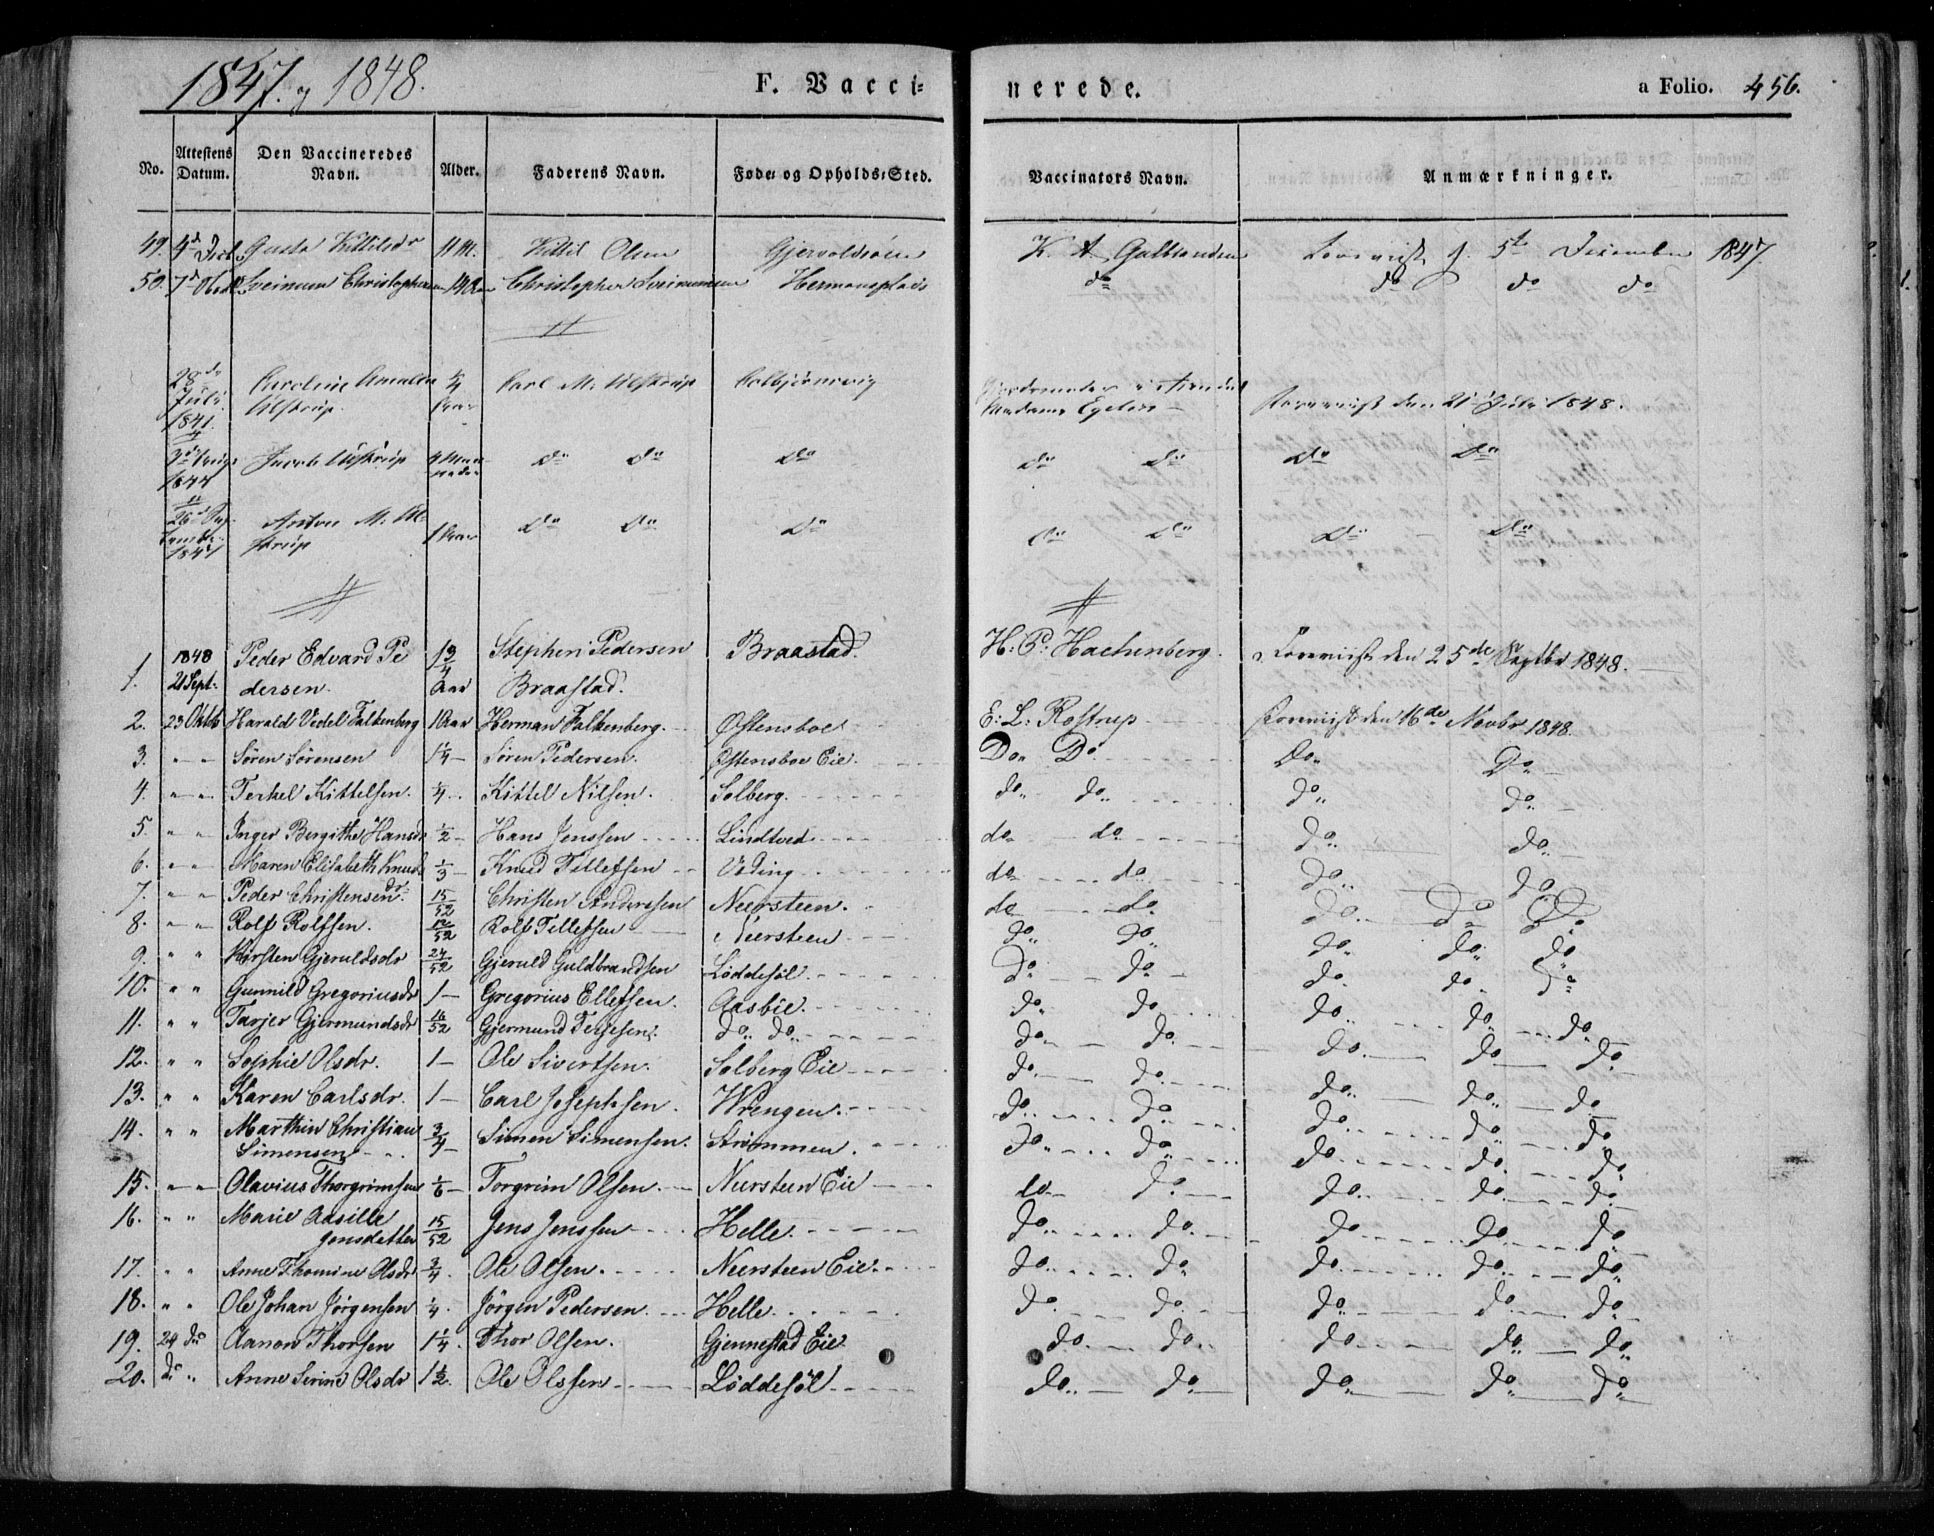 1847 og 1848.
F. Vacci- nerede.
a Folio. 456.
No. Attestens Datum. Den Vaccineredes Navn. Alder. Faderens Navn. Føde- og Opholds-Sted. Vaccinators Navn. Anmærkninger.
49. 4d Kittil Olsen 5te December 1847
50. 7d Christopher Hermansplads do do do do
28de Juli 1841 Caroline Amalia Ulstrup. Carl M. Ulstrup Colbjørnsvig Madame den 21 Juli 1848.
1844 Jacob Ulstrup 4 do do do do do do do
26d 1847 Anton M. Ulstrup 1 Aar do do do do do do do
1. 1848 21 Sept. Peder Edvard Pe
dersen. 1 3/4 Aar Stephen Pedersen Braastad. Braastad H: P: Hachenberg. Foreviist den 25de Septbr 1848.
2. 23 Oktbr Harald Vedel Falkenberg 1 Aar Herman Falkenberg. Østensboe E: L: Rostrup Foreviist den 16de Novbr 1848.
3. " " Søren Sørensen 1 1/4 Søren Pedersen. Østensboe Eie. Do Do Do Do
4. " " Terkel Kittelsen. 1/4 Kittel Nilsen. Solberg. do do do do
5. " " Inger Bergithe Hansdr 1/2 Hans Jenssen Lindtved do do do do
6. " " Maren Elisabeth Knudsdr 1/3 Knud Tellefsen do do do do
7. " " Peder Christensen 15/52 Christen Anderssen Neersteen. do do do do do
8. " " Rolf Rolfsen. 12/52 Rolf Tellefsen Neersteen do do do do do
9. " " Kirsten Gjeruldsdr 24/52 Gjeruld Guldbrandsen Løddesøl. do do do do do
10. " " Gunnild Gregoriusdr 1 Gregorius Ellefsen. Aasbie. do do do do do
11. " " Tarjer Gjermundsdr 16/52 Gjermund Terjesen. do do do do do do do
12. " " Sophie Olsdr. 1 Ole Sivertsen. Solberg Eie do do do do do
13. " " Karen Carlsdr. 1 Carl Josephsen. Wrengen. do do do do do
14. " " Marthin Christian
Simensen 3/4 Simen Simensen. Strømmen. do do do do do
15. " " Olavius Thorgrimsen 1/6 Torgrim Olsen. Neersteen Eie do do do do do
16. " " Marie Aasille
Jensdatter 15/52 Jens Jenssen Helle. do do do do do
17. " " Anne Thomine Olsdr 3/4. Ole Olsen. Neersteen Eie. do do do do do
18. " " Ole Johan Jørgensen 1/4. Jørgen Pedersen. Helle. do do do do do
19. 24 do Aanon Thorsen 1 1/4. Thor Olsen. Gjennestad Eie do do do do do
20. do " Anne Serine Olsdr 1 1/2. Ole Olssen Løddesøl do do do do do